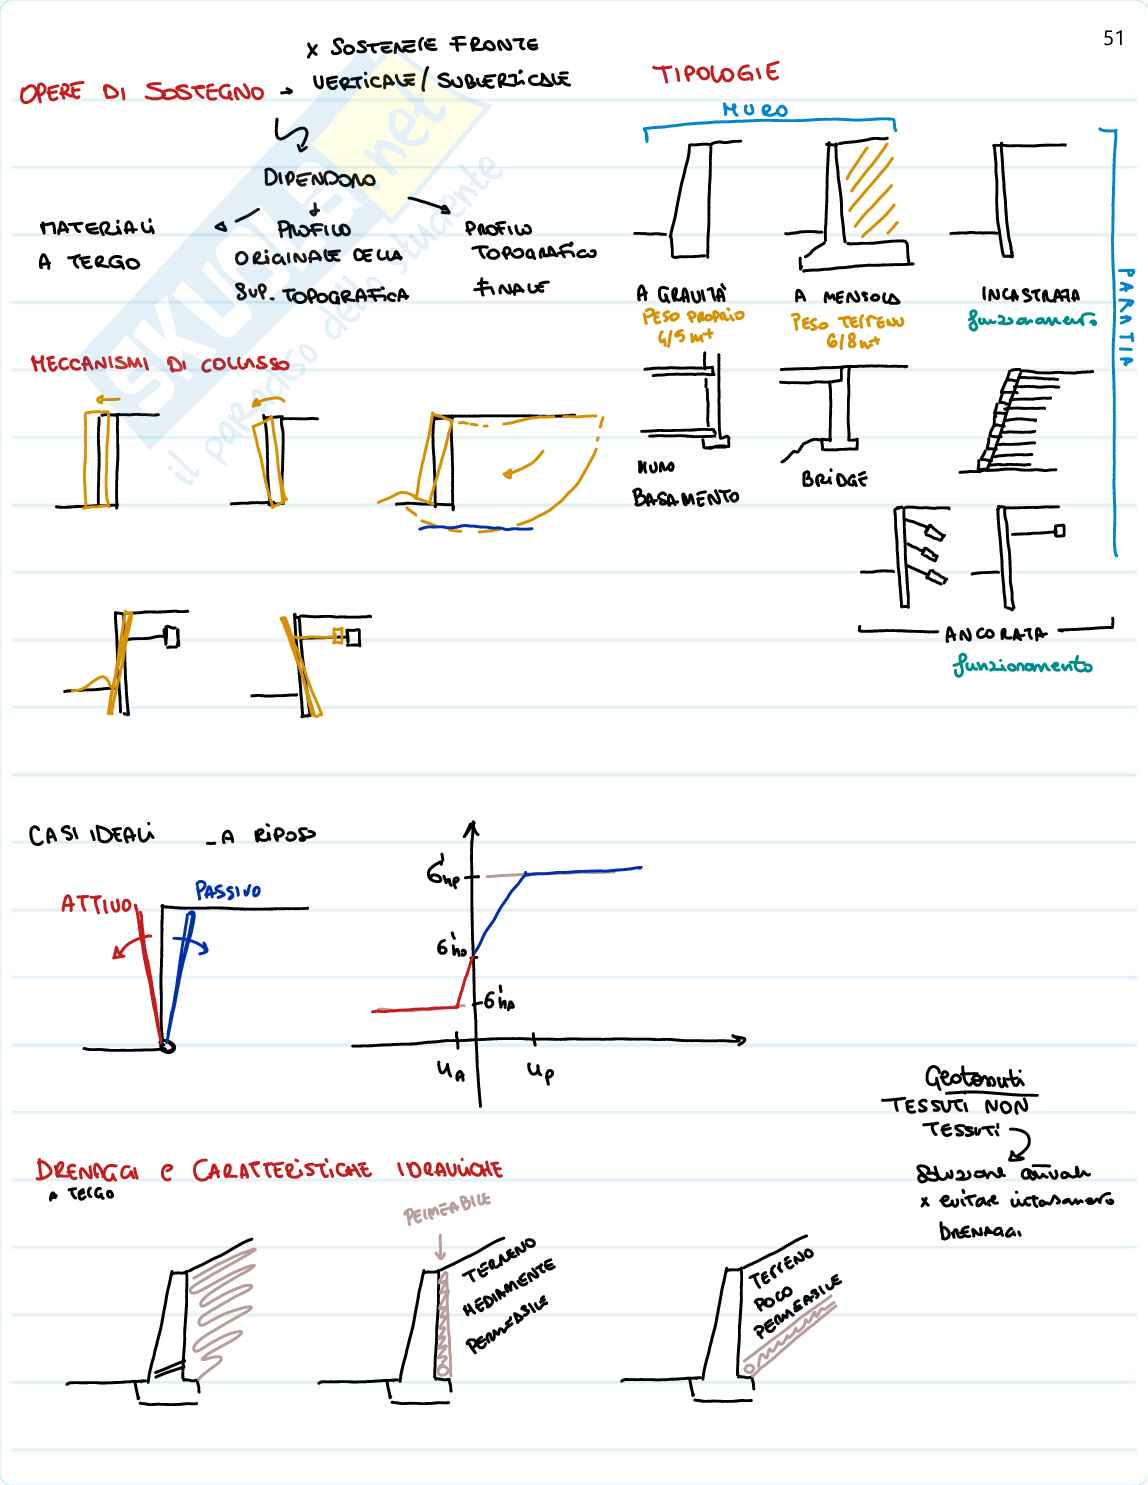 51
OPERE DI SOSTEGNO →
x SOSTENERE FRONTE
VERTICALE / SUBVERTICALE
DIPENDONO
MATERIALI
A TERGO
PROFILO
ORIGINALE DELLA
SUP. TOPOGRAFICA
PROFILO
TOPOGRAFICO
FINALE
TIPOLOGIE
MURO
A GRAVITÀ
PESO PROPRIO
4/5 mt
A MENSOLA
PESO TERRENO
6/8 mt
INCASTRATA
funzionamento
PARATIA
MURO
BASAMENTO
BRIDGE
ANCORATA
funzionamento
MECCANISMI DI COLLASSO
CASI IDEALI
- A RIPOSO
ATTIVO
PASSIVO
σ'hp
σ'ho
σ'hA
uA
uP
Geotessuti
TESSUTI NON
TESSUTI
Soluzione attuale
x evitare intasamento
DRENAGGI
DRENAGGI e CARATTERISTICHE IDRAULICHE
A TERGO
PERMEABILE
TERRENO
MEDIAMENTE
PERMEABILE
TERRENO
POCO
PERMEABILE
SKUOLA.net
il paradiso dello studente